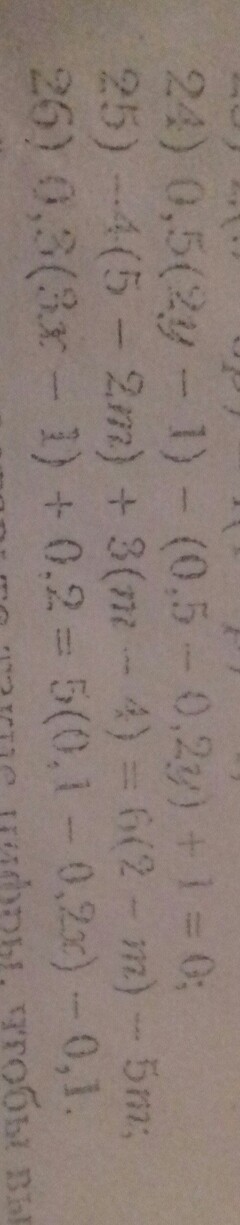 24) 0,5(2y − 1) − (0,5 − 0,2y) + 1 = 0;
25) −4(5 − 2m) + 3(m − 4) = 6(2 − m) − 5m;
26) 0,3(3x − 1) + 0,2 = 5(0,1 − 0,2x) − 0,1.
цифры, чтобы